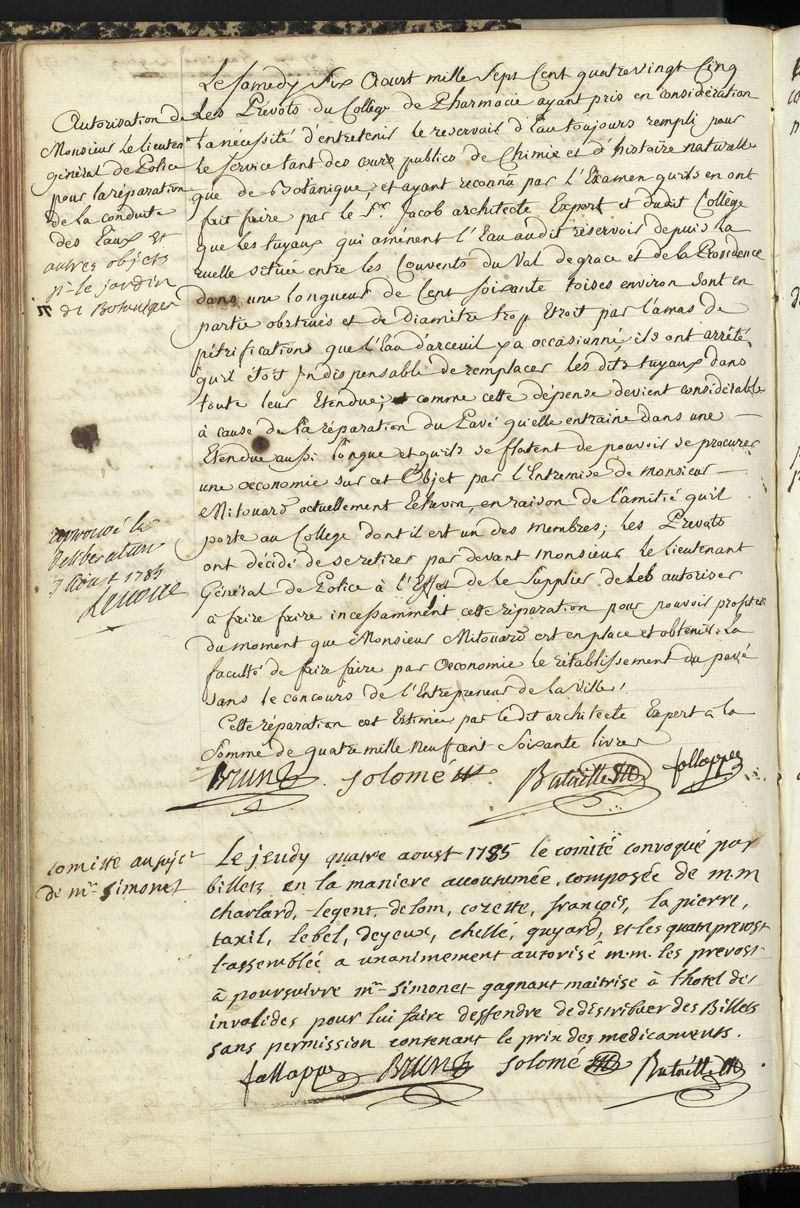 Le Samedy Six Aoust mille Sept Cent quatrevingt Cinq
Autorisation de
Monsieur le lieuten.t
général de Police
pour la réparation
de la conduite
des Eaux et
autres objets
pr. le jardin
de Botanique
Les Prévots du Collége de Pharmacie ayant pris en considération
la nécessité d'entretenir le reservoir d'Eau toujours rempli pour
le service tant des cours publics de Chimie et d'histoire naturelle
que de Botanique; et ayant reconnu par l'Examen qu'ils en ont
fait faire par le Sr. Jacob architecte Expert et dudit Collège
que les tuyaux qui amènent l'Eau audit réservoir depuis la
ruelle située entre les Couvents du Val de grace et de la Providence
dans une longueur de Cent soixante toises environ sont en
partie obstrués et de diamètre trop Etroit par l'amas de
pétrifications que l'Eau d'arceuil y a occasionné, ils ont arrété
qu'il étoit Indispensable de remplacer les dits tuyaux dans
toute leur Etendue; et comme cette dépense devient considérable
à cause de la réparation du Pavé qu'elle entraine dans une
Etendue aussi longue et qu'ils se flatent de pouvoir se procurer
une œconomie sur cet Objet par l'Entremise de Monsieur
Mitouard actuellement Echevin, en raison de l'amitié qu'il
porte au College dont il est un des membres; les Prevots
ont décidé de se retirer par devant Monsieur le Lieutenant
Général de Police à l'Effet de le Supplier de les autoriser
à faire faire incessamment cette réparation pour pouvoir profiter
du moment que Monsieur Mitouard est en place et obtenir la
faculté de faire faire par Œconomie le rétablissement du pavé
sans le concours de l'Entrepreneur de la Ville.
approuvé la
deliberation
7 Aout 1785
Lenoire
Cette réparation est Estimée par ledit architecte Expert à la
Somme de quatre mille Neuf cent Soixante livres
Brun Solomé Bataille fallappe
comitte au sujet
de mr. Simonet
Le jeudy quatre aoust 1785 le comité convoqué par
billets en la maniere accoutumée, composée de m.m
charlard, legent, delom, cozette, françois, la pierre,
taxil, lebel, deyeux, chellé, guyard, et les quatre prevost
l'assemblée a unanimement autorisé m.m. les prevost
à poursuivre mr. Simonet gagnant maitrise à l'hotel des
invalides pour lui faire deffendre de distribuer des Billets
sans permission contenant le prix des medicaments.
fallappe Brun Solomé Bataille